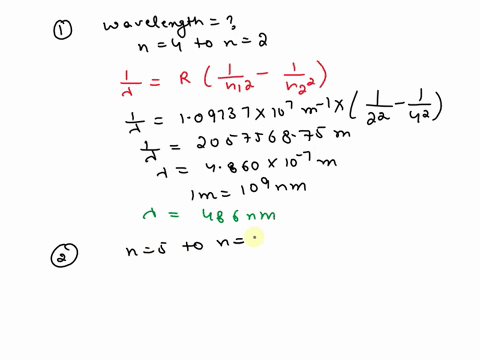 ① wavelength = ?
n=4 to n=2
1/λ = R ( 1/n₁2 - 1/n₂2 )
1/λ = 1.09737 × 10⁷ m⁻¹ × ( 1/2² - 1/4² )
1/λ = 2057568.75 m
λ = 4.860 × 10⁻⁷ m
1m = 10⁹ nm
λ = 486 nm
② n=5 to n=